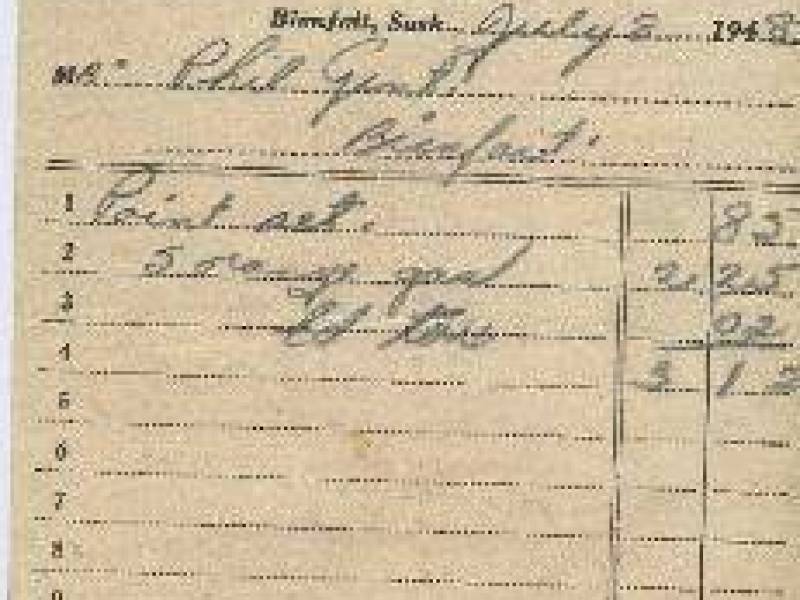 Bienfait, Sask. July 3 1948
MR. Phil Gent
Bienfait
1 Point set. 85
2 5 orange gas 2 25
3 Ed tax 02
4 3 12
5
6
7
8
9